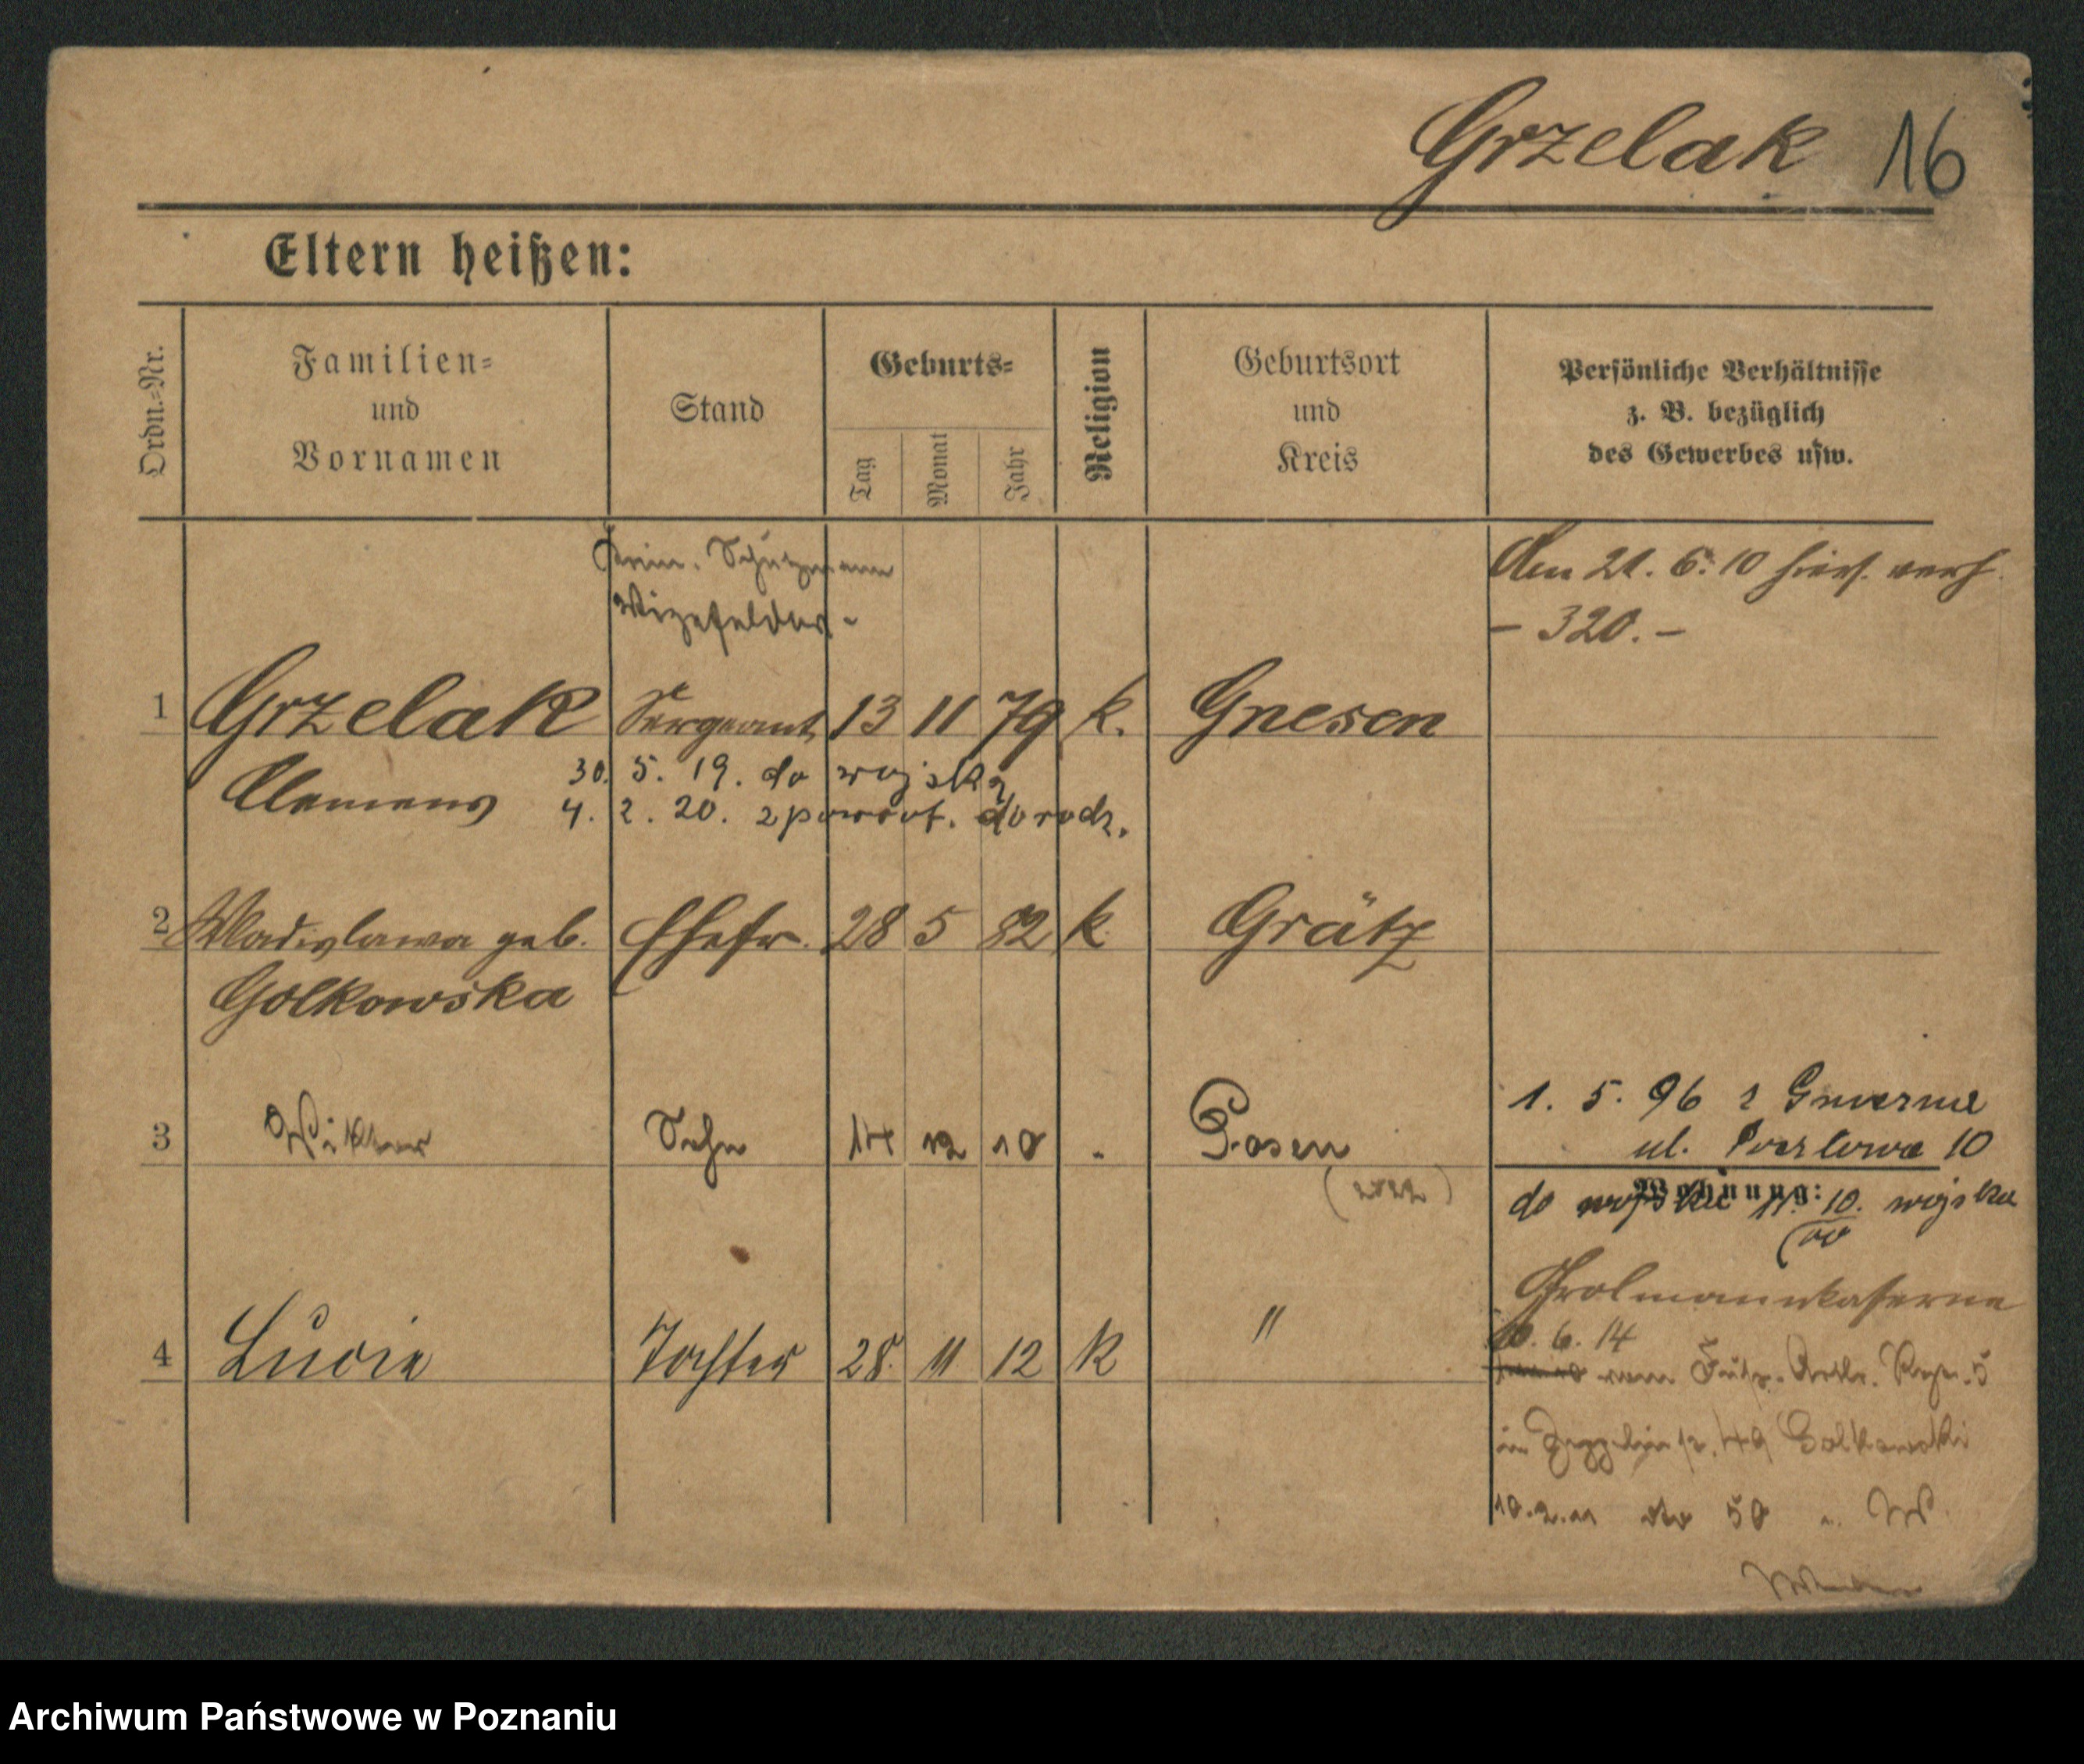 Grzelak 16
Eltern heißen:
Ordn.=Nr.
Familien=
und
Vornamen
Stand
Geburts=
Tag
Monat
Jahr
Religion
Geburtsort
und
Kreis
Persönliche Verhältnisse
z. B. bezüglich
des Gewerbes usw.
Krim. Schutzmann
Vizefeldw.
Den 21. 6. 10 hier verh.
– 320. –
1 Grzelak Sergeant 13 11 79 k. Gnesen
Clemens
30. 5. 19. do wojska
4. 2. 20. z powrot. do rodz.
2 Wladislawa geb. Ehefr. 28 5 82 k Grätz
Golkowska
1. 5. 96
ul. 10
3 Wiktor Sohn 14 12 10 Posen
Wohnung:
do wojska 11. 10. wojska
Grolmannkaserne
6. 14
4 Lucie Tochter 28. 11 12 k "
vom Fußs. Artl. Reg. 5
in Zeppelin 49 Golkowski
10. 2. 11 50